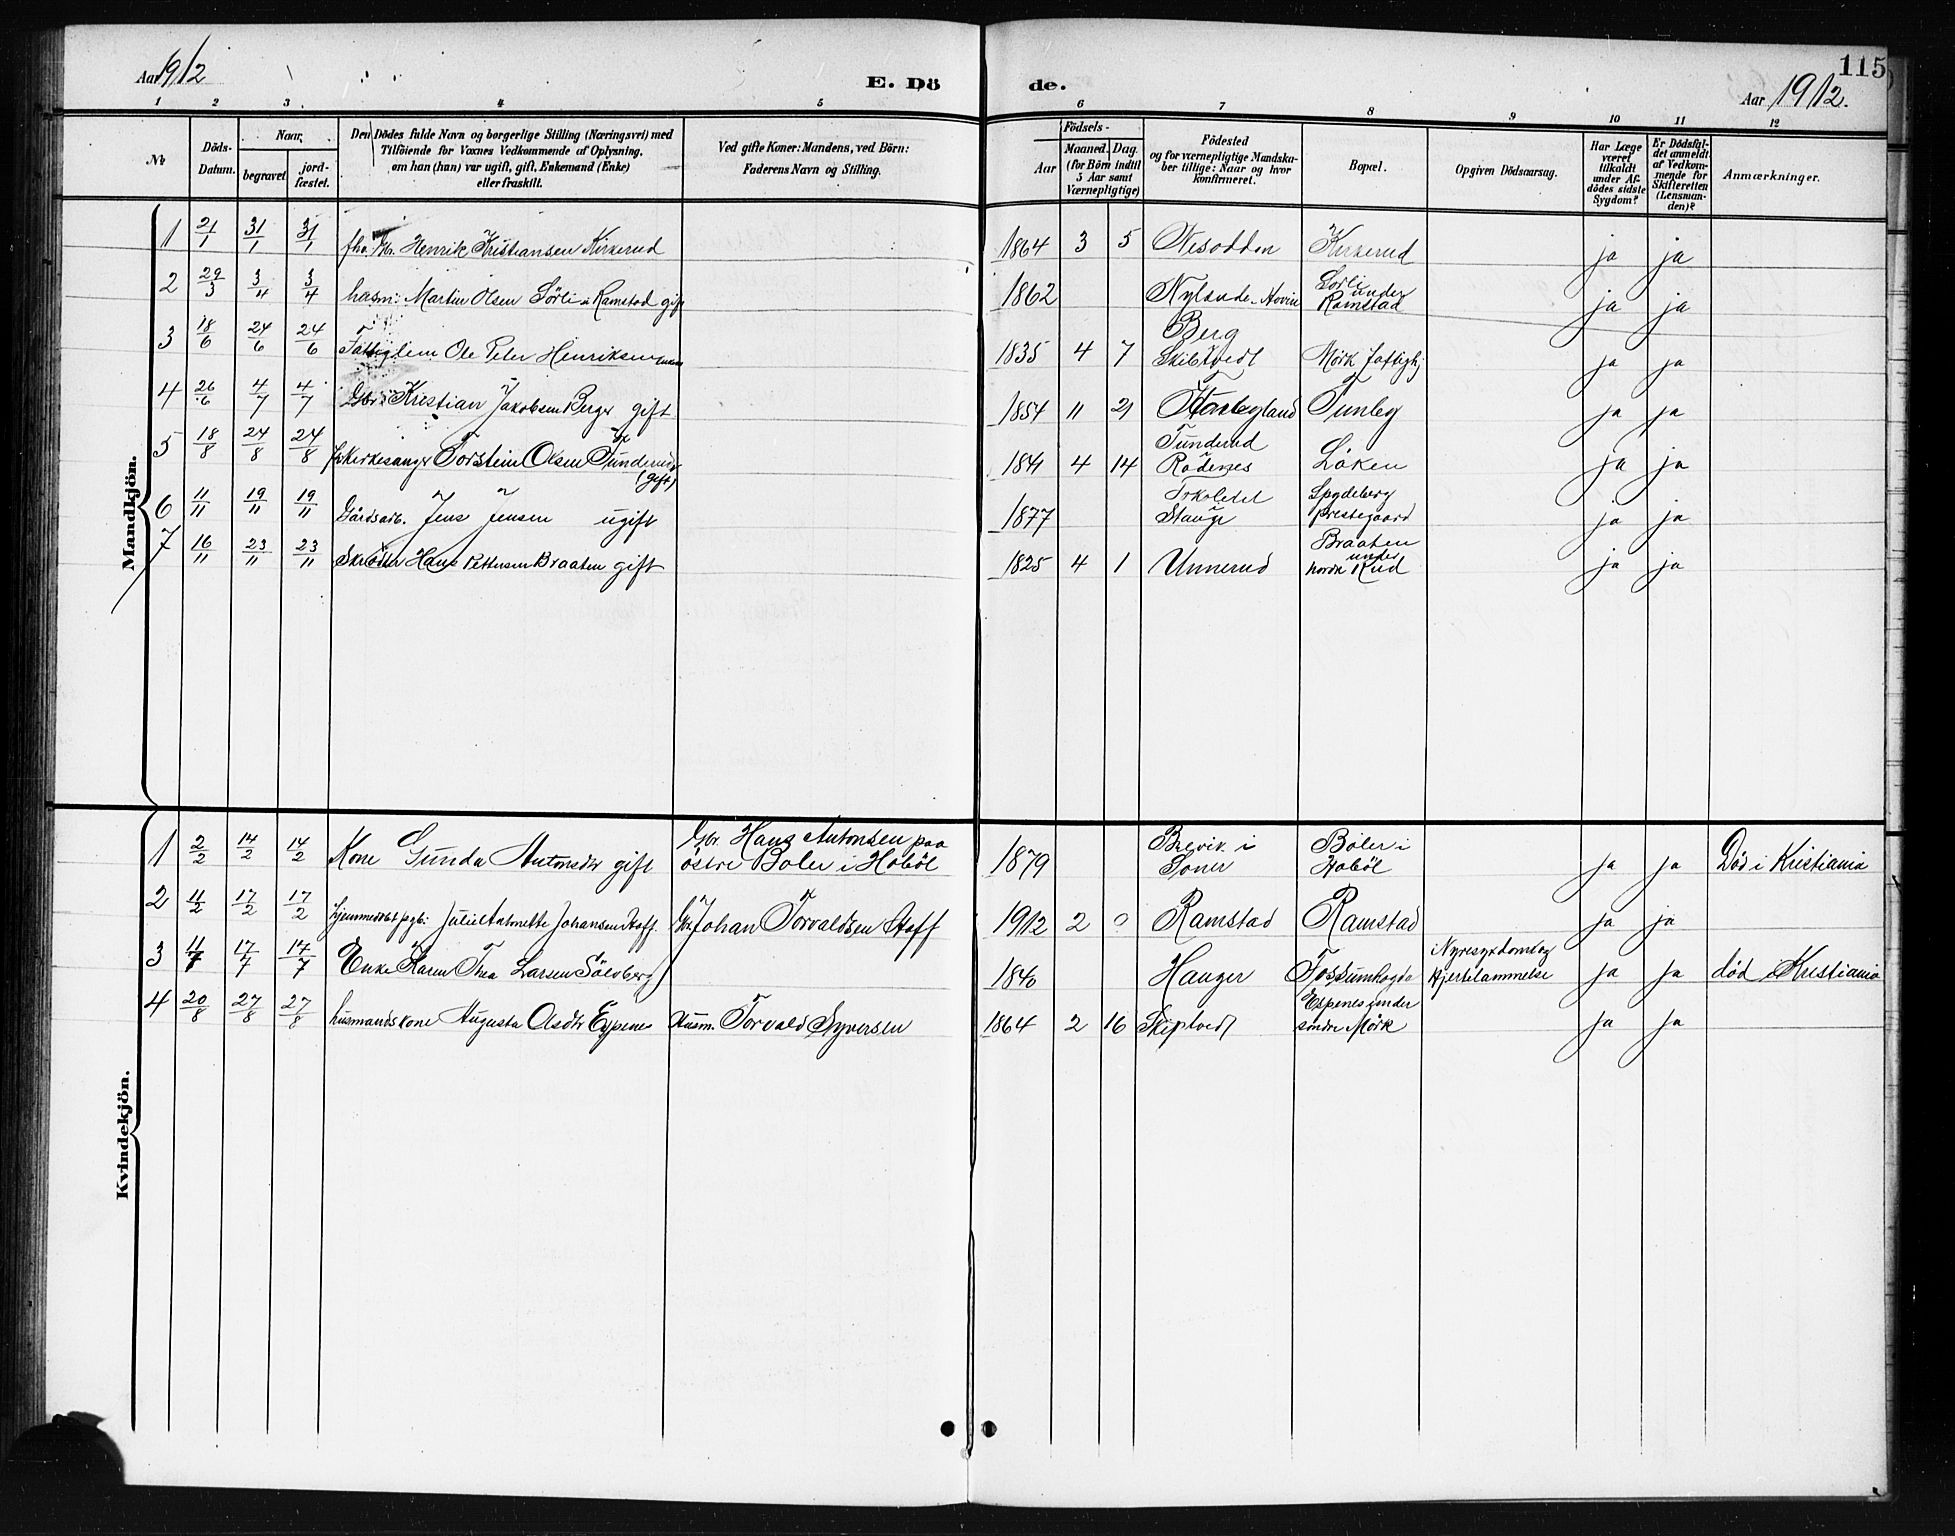 Aar 1912
E. Dö
de.
115
Aar 1912.
1 2 3 4 5 6 7 8 9 10 11 12
No
Döds-Datum.
Naar
begravet
jordfæstet.
Den Dödes fulde Navn og borgerlige Stilling (Næringsvei) med
Tilföiende for Voxnes Vedkommende af Oplysning,
om han (han) var ugift, gift, Enkemand (Enke)
eller fraskilt.
Ved gifte Koner: Mandens, ved Börn:
Faderens Navn og Stilling.
Födsels-
Aar
Maaned. Dag.
(for Börn indtil
5 Aar samt
Værnepligtige)
Födested
og for værnepligtige Mandska-
ber tillige: Naar og hvor
konfirmeret.
Bopæl.
Opgiven Dödsaarsag.
Har Læge
været
tilkaldt
under Af-
dödes sidste
Sygdom?
Er Dödsfal-
det anmeldt
af Vedkom-
mende for
Skifteretten
(Lensman-
den)?
Anmærkninger.
Mandkjön.
1 21/1 31/1 31/1 Henrik Kristiansen Kirkerud 1864 3 5 Nesodden Kirkerud ja ja
2 29/3 3/4 3/4 husm: Martin Olsen Sörli u Ramstad gift 1862 Nylende Hovin Sörli under Ramstad ja ja
3 18/6 24/6 24/6 Fattiglem Ole Peter Henriksen 1835 4 7 Berg Skibtvedt Mörk ja ja
4 26/6 4/7 4/7 Gbr: Kristian Jakobsen Berger gift 1854 11 21 Tunby ja ja
5 18/8 24/8 24/8 Kirkesanger Torstein Olsen Tunderud (gift) 1841 4 14 Tunderud Rödenes Löken ja ja
6 11/11 19/11 19/11 Gårdsarb. Jens Jensen ugift 1877 Stange Spydeberg prestegaard ja ja
7 16/11 23/11 23/11 Skrædder Hans Pettersen Braaten gift 1825 4 1 Unnerud Braaten under nordr Rud ja ja
Kvindekjön.
1 2/2 14/2 14/2 Kone Gunda Antonsdtr gift Gbr. Hans Antonsen paa östre Boler i Haböl 1879 Brevik i Soner Böler i Haböl ja ja Död i Kristiania
2 11/2 17/2 17/2 hjemmedöbt pgb: Julie Antonette Johansen Hoff Gbr Johan Torvaldsen Hoff 1912 2 Ramstad Ramstad ja ja
3 11/7 17/7 17/7 Enke Karen Thea Larsen Sölvberg 1840 Hauger Nyresygdom og Hjertelammelse ja ja död i Kristiania
4 20/8 27/8 27/8 husmandskone Augusta Olsdtr Espenes Husm. Torvald Syversen 1864 2 16 Skiptvedt Espenes under söndre Mörk ja ja